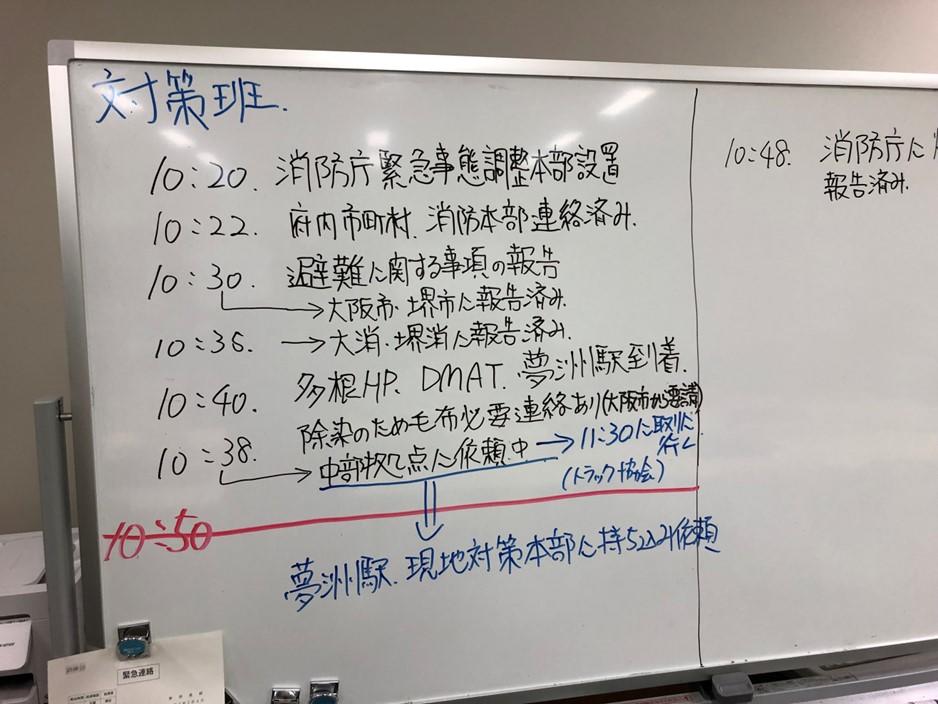 対策班.
10:20. 消防庁緊急事態調整本部設置
10:22. 府内市町村.消防本部連絡済み.
10:30 避難に関する事項の報告
→大阪市・堺市に報告済み.
10:36. →大消・堺消に報告済み.
10:40. 多根HP. DMAT. 夢洲駅到着.
10:38. 除染のため毛布必要連絡あり(大阪市から要請)
→中部拠点に依頼中 →11:30に取りに行く
(トラック協会)
10:50
夢洲駅.現地対策本部に持ち込み依頼
10:48. 消防庁に
報告済み.
緊急連絡